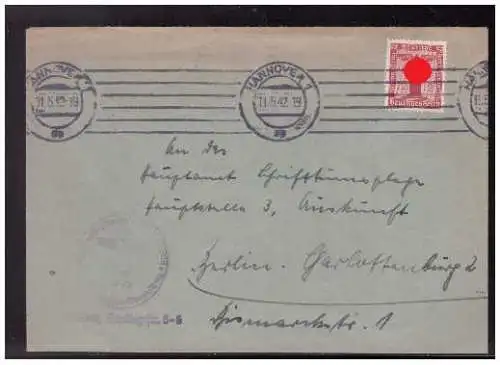 HANNOVER 1
11.5.42.19
HANNOVER 1
11.5.42.19
An das
Hauptamt Schrifttumspflege
Hauptstelle 3, Auskunft
Berlin. Charlottenburg 2
Bismarckstr. 1